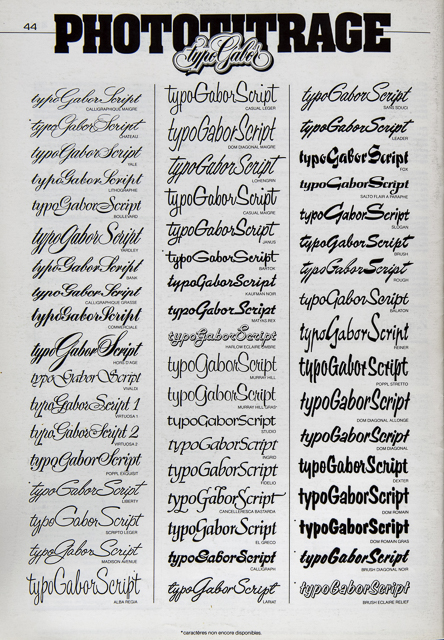 44
PHOTOTITRAGE
typoGabor
typoGaborScript
CALLIGRAPHIQUE MAIGRE
typoGaborScript
CHATEAU
typoGaborScript
YALE
typoGaborScript
LITHOGRAPHE
typoGaborScript
BOULEVARD
typoGaborScript
YARDLEY
typoGaborScript
BANK
typoGaborScript
CALLIGRAPHIQUE GRASSE
typoGaborScript
COMMERCIALE
typoGaborScript
HORS D'AGE
typoGaborScript
VIVALDI
typoGaborScript 1
VIRTUOSA 1
typoGaborScript 2
VIRTUOSA 2
typoGaborScript
POPPL EXQUISIT
typoGaborScript
LIBERTY
typoGaborScript
SCRIPTO LEGER
typoGaborScript
MADISON AVENUE
typoGaborScript
ALBA REGIA
typoGaborScript
CASUAL LEGER
typoGaborScript
DOM DIAGONAL MAIGRE
typoGaborScript
LOHENGRIN
typoGaborScript
CASUAL MAIGRE
typoGaborScript
JANUS
typoGaborScript
BARTOK
typoGaborScript
KAUFMAN NOIR
typoGaborScript
MATYAS REX
typoGaborScript
HARLOW ECLAIRE OMBRE
typoGaborScript
MURRAY HILL
typoGaborScript
MURRAY HILL GRAS
typoGaborScript
STUDIO
typoGaborScript
INGRID
typoGaborScript
FIDELIO
typoGaborScript
CANCELLERESCA BASTARDA
typoGaborScript
EL GRECO
typoGaborScript
CALLIGRAPH
typoGaborScript
LARIAT
typoGaborScript
SANS SOUCI
typoGaborScript
LEADER
typoGaborScript
FOX
typoGaborScript
SALTO FLAIR A PARAPHE
typoGaborScript
SLOGAN
typoGaborScript
BRUSH
typoGaborScript
ROUGH
typoGaborScript
BALATON
typoGaborScript
REINER
typoGaborScript
POPPL STRETTO
typoGaborScript
DOM DIAGONAL ALLONGE
typoGaborScript
DOM DIAGONAL
typoGaborScript
DEXTER
typoGaborScript
DOM ROMAIN
typoGaborScript
DOM ROMAIN GRAS
typoGaborScript
BRUSH DIAGONAL NOIR
typoGaborScript
BRUSH ECLAIRE RELIEF
*caractères non encore disponibles.